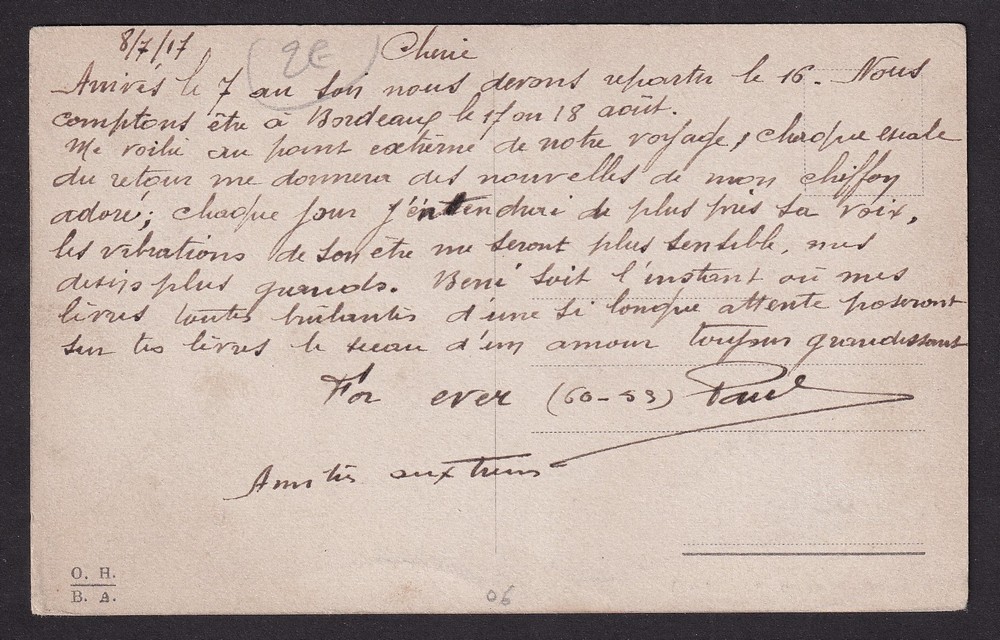 8/7/17
2E
Cherie
Arrivés le 7 au soir nous devons repartir le 16. Nous
comptons être à Bordeaux le 17 ou 18 août.
Me voilà au point extrème de notre voyage, chaque escale
du retour me donnera des nouvelles de mon chiffon
adoré; chaque jour j'entendrai de plus près sa voix,
les vibrations de son être me seront plus sensible, mes
desirs plus grands. Beni soit l'instant où mes
lèvres toutes brûlantes d'une si longue attente poseront
sur tes lèvres le sceau d'un amour toujour grandissant
For ever (60-53) Paul
Amitiés aux tiens
O. H.
B. A.
06